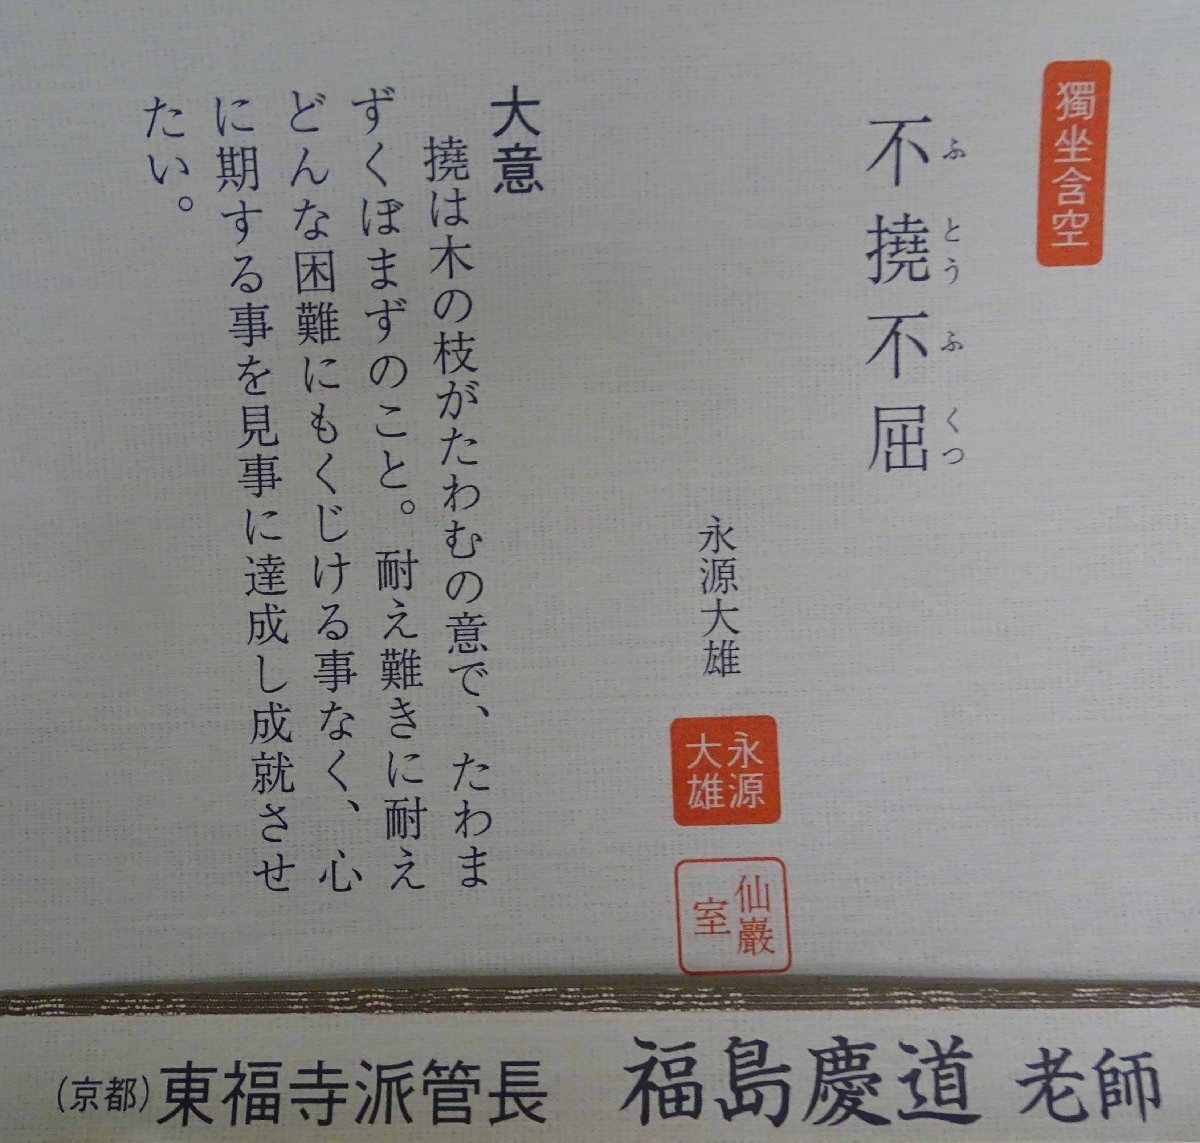 獨坐含空
不撓不屈
ふとうふくつ
永源大雄
永源
大雄
仙巖
室
大意
撓は木の枝がたわむの意で、たわま
ずくぼまずのこと。耐え難きに耐え
どんな困難にもくじける事なく、心
に期する事を見事に達成し成就させ
たい。
(京都)東福寺派管長 福島慶道 老師